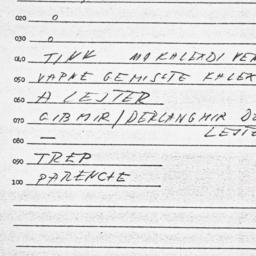 020 o
030 o
040 TIKK MAKALEDI VER
050 VAPNE GEMISTE KALEX
060 A LESTER
070 GIBMIR/DERLANGMIR DE
LESTE
080 —
090 TREP
100 PARENCHE